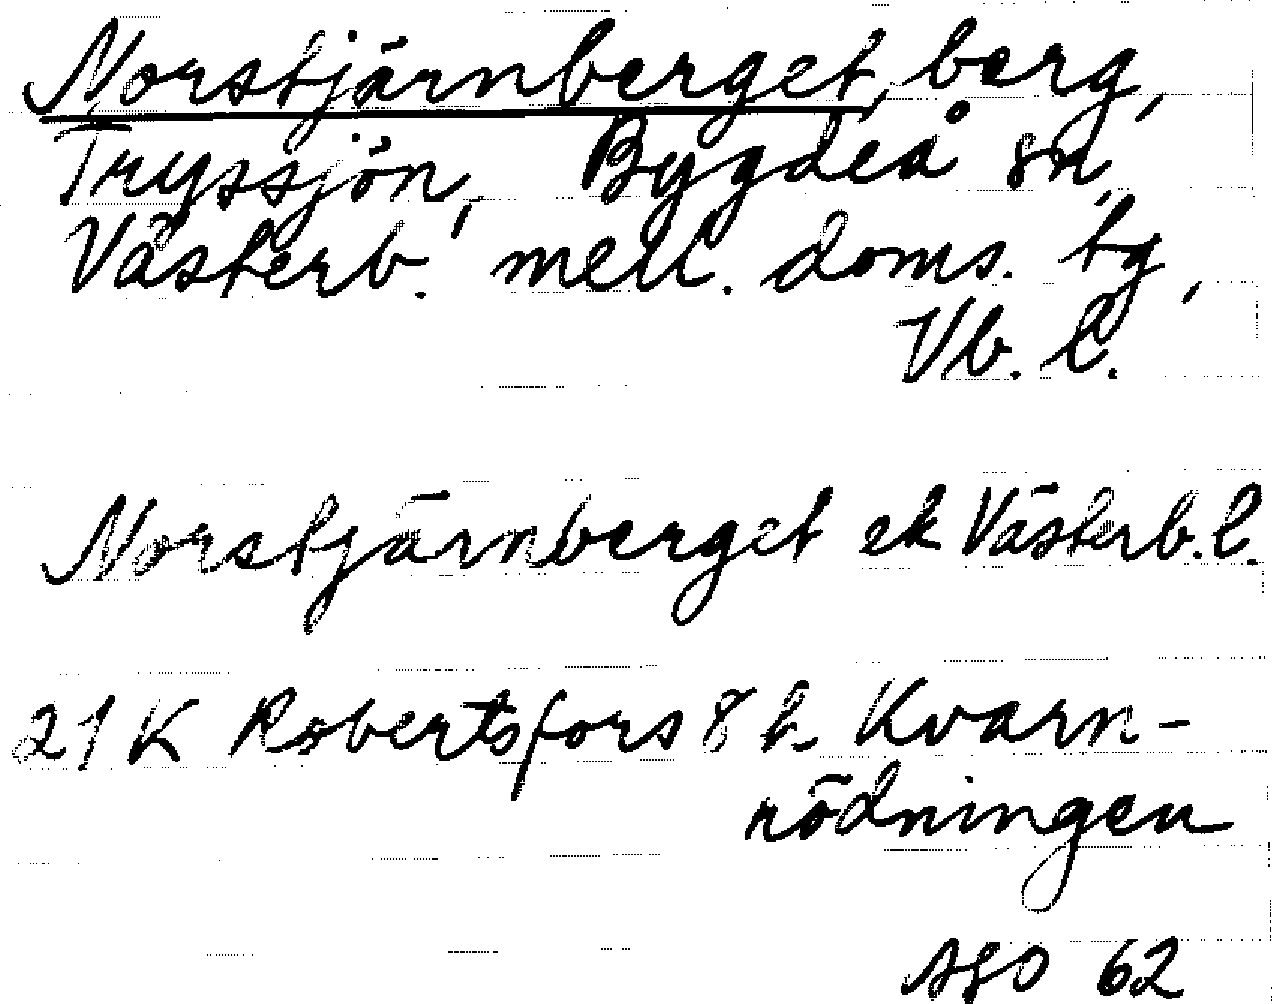 Norstjärnberget, berg,
Tryssjön, Bygdeå sn,
Västerb. mell. doms. tg,
Vb. l.
Norstjärnberget ek Västerb. l.
21 K Robertsfors 8 h Kvarn-
rödningen
AGO 62